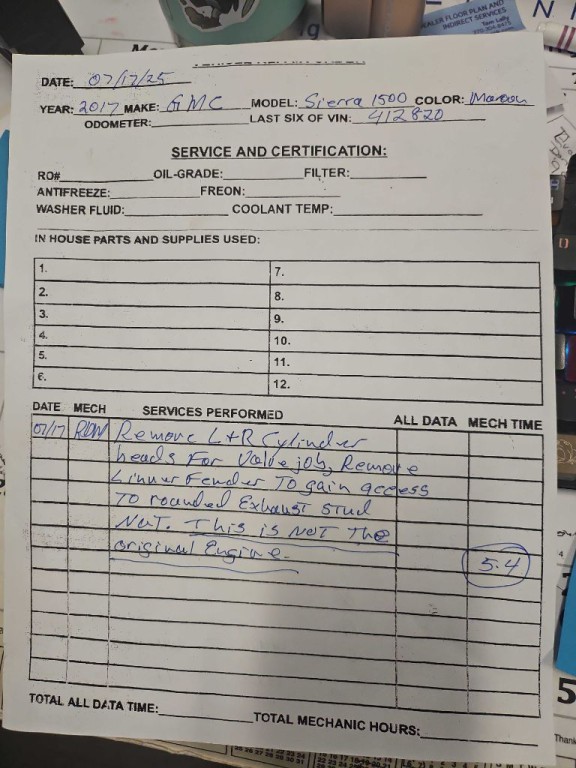 DEALER FLOOR PLAN AND
INDIRECT SERVICES
Tom Lally
DATE: 07/17/25
YEAR: 2017 MAKE: GMC MODEL: Sierra 1500 COLOR: Maroon
ODOMETER: LAST SIX OF VIN: 412820
SERVICE AND CERTIFICATION:
RO# OIL-GRADE: FILTER:
ANTIFREEZE: FREON:
WASHER FLUID: COOLANT TEMP:
IN HOUSE PARTS AND SUPPLIES USED:
1. 7.
2. 8.
3. 9.
4. 10.
5. 11.
6. 12.
DATE MECH SERVICES PERFORMED ALL DATA MECH TIME
07/17 RDW Remove L+R Cylinder
heads For Valve job, Remove
L inner Fender To gain access
To rounded Exhaust stud
Nut. This is NOT The
original Engine.
5.4
TOTAL ALL DATA TIME: TOTAL MECHANIC HOURS: